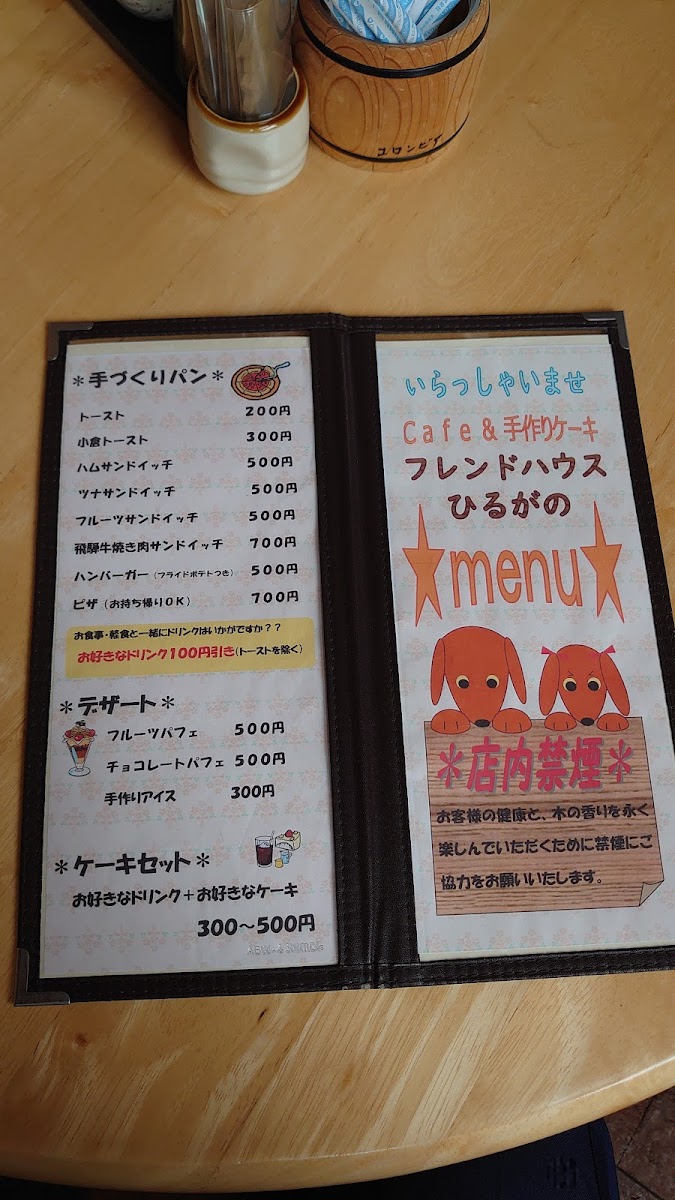 コロンビア
＊手づくりパン＊
トースト 200円
小倉トースト 300円
ハムサンドイッチ 500円
ツナサンドイッチ 500円
フルーツサンドイッチ 500円
飛騨牛焼き肉サンドイッチ 700円
ハンバーガー（フライドポテトつき） 500円
ピザ（お持ち帰りOK） 700円
お食事・軽食と一緒にドリンクはいかがですか？？
お好きなドリンク100円引き(トーストを除く)
＊デザート＊
フルーツパフェ 500円
チョコレートパフェ 500円
手作りアイス 300円
＊ケーキセット＊
お好きなドリンク＋お好きなケーキ
300～500円
いらっしゃいませ
Cafe＆手作りケーキ
フレンドハウス
ひるがの
★menu★
＊店内禁煙＊
お客様の健康と、木の香りを永く
楽しんでいただくために禁煙にご
協力をお願いいたします。